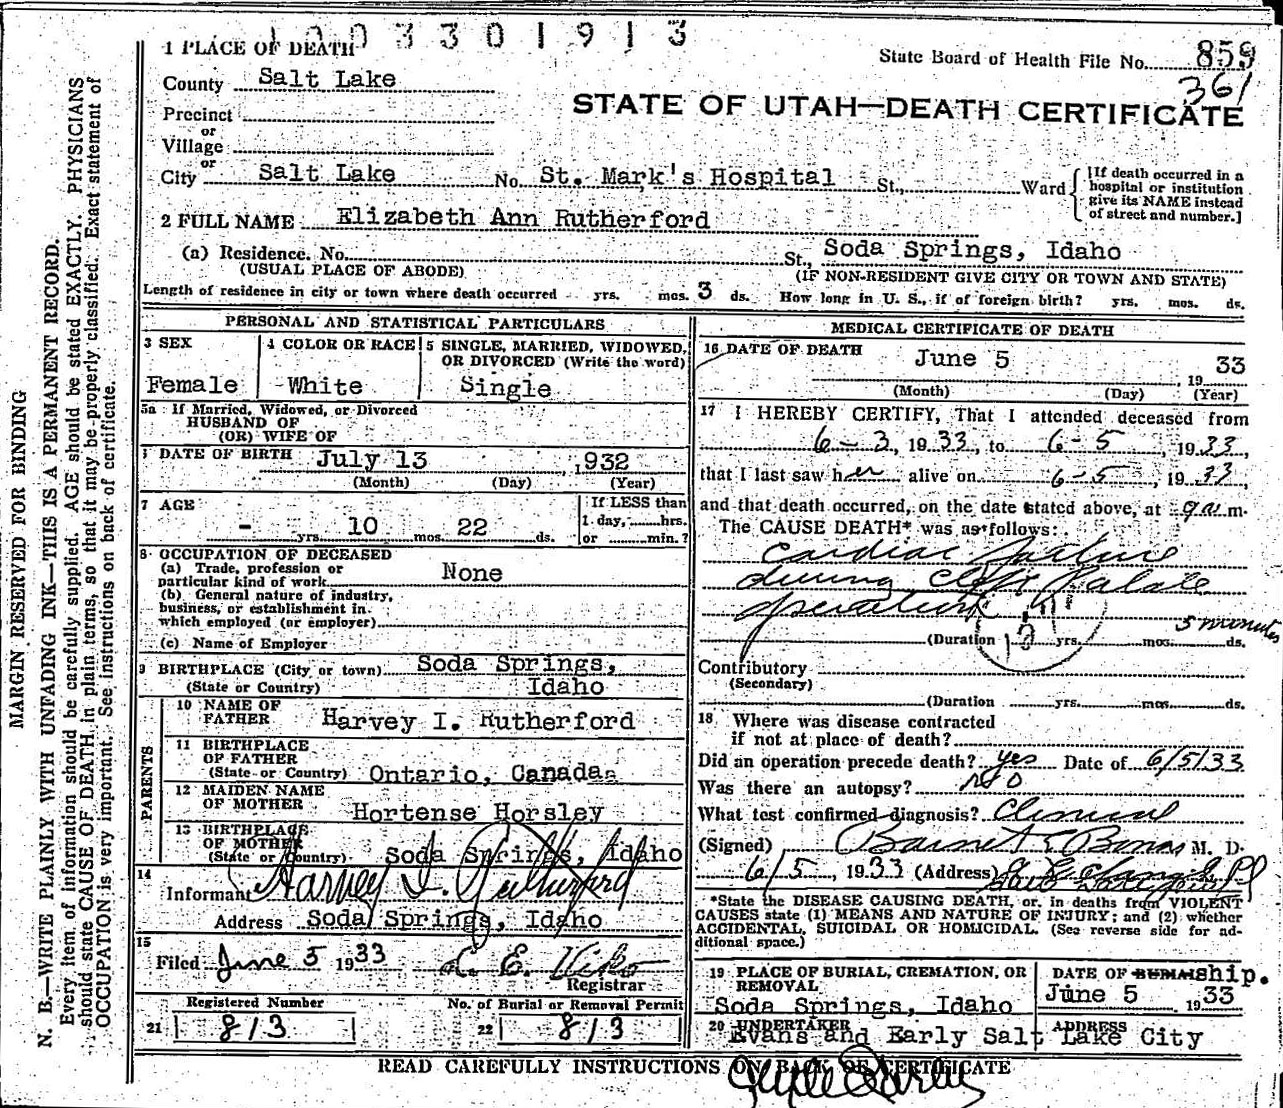 1003301913
1 PLACE OF DEATH
State Board of Health File No. 859
361
County Salt Lake
STATE OF UTAH—DEATH CERTIFICATE
Precinct
or
Village
or
City Salt Lake No. St. Mark's Hospital St., Ward
[If death occurred in a
hospital or institution
give its NAME instead
of street and number.]
2 FULL NAME Elizabeth Ann Rutherford
(a) Residence. No. St., Soda Springs, Idaho
(USUAL PLACE OF ABODE) (IF NON-RESIDENT GIVE CITY OR TOWN AND STATE)
Length of residence in city or town where death occurred yrs. mos. 3 ds. How long in U. S., if of foreign birth? yrs. mos. ds.
PERSONAL AND STATISTICAL PARTICULARS
3 SEX
Female
4 COLOR OR RACE
White
5 SINGLE, MARRIED, WIDOWED,
OR DIVORCED (Write the word)
Single
5a If Married, Widowed, or Divorced
HUSBAND OF
(OR) WIFE OF
DATE OF BIRTH July 13, 1932
(Month) (Day) (Year)
7 AGE
- yrs. 10 mos. 22 ds.
If LESS than
1 day, hrs.
or min.?
8 OCCUPATION OF DECEASED
(a) Trade, profession or
particular kind of work None
(b) General nature of industry,
business, or establishment in
which employed (or employer)
(c) Name of Employer
9 BIRTHPLACE (City or town) Soda Springs,
(State or Country) Idaho
PARENTS
10 NAME OF
FATHER Harvey I. Rutherford
11 BIRTHPLACE
OF FATHER
(State or Country) Ontario, Canada
12 MAIDEN NAME
OF MOTHER Hortense Horsley
13 BIRTHPLACE
OF MOTHER
(State or Country) Soda Springs, Idaho
14
Informant Harvey I. Rutherford
Address Soda Springs, Idaho
15
Filed June 5 1933
Registrar
Registered Number No. of Burial or Removal Permit
21 813 22 813
MEDICAL CERTIFICATE OF DEATH
16 DATE OF DEATH June 5, 1933
(Month) (Day) (Year)
17 I HEREBY CERTIFY, That I attended deceased from
6-3, 1933, to 6-5, 1933,
that I last saw her alive on 6-5, 1933,
and that death occurred, on the date stated above, at 9 a.m.
The CAUSE DEATH* was as follows:
cardiac failure
during cleft palate
operation
(Duration yrs. mos. 5 minutes ds.
Contributory
(Secondary)
(Duration yrs. mos. ds.
18 Where was disease contracted
if not at place of death?
Did an operation precede death? yes Date of 6/5/33
Was there an autopsy? no
What test confirmed diagnosis? Clinical
(Signed) M. D.
6/5, 1933 (Address)
*State the DISEASE CAUSING DEATH, or, in deaths from VIOLENT
CAUSES state (1) MEANS AND NATURE OF INJURY; and (2) whether
ACCIDENTAL, SUICIDAL OR HOMICIDAL. (See reverse side for ad-
ditional space.)
19 PLACE OF BURIAL, CREMATION, OR
REMOVAL
Soda Springs, Idaho
DATE OF BURIAL ship.
June 5 1933
20 UNDERTAKER ADDRESS
Evans and Early Salt Lake City
READ CAREFULLY INSTRUCTIONS ON BACK OF CERTIFICATE
MARGIN RESERVED FOR BINDING
N. B.—WRITE PLAINLY WITH UNFADING INK—THIS IS A PERMANENT RECORD.
Every item of information should be carefully supplied. AGE should be stated EXACTLY. PHYSICIANS
should state CAUSE OF DEATH in plain terms, so that it may be properly classified. Exact statement of
OCCUPATION is very important. See instructions on back of certificate.